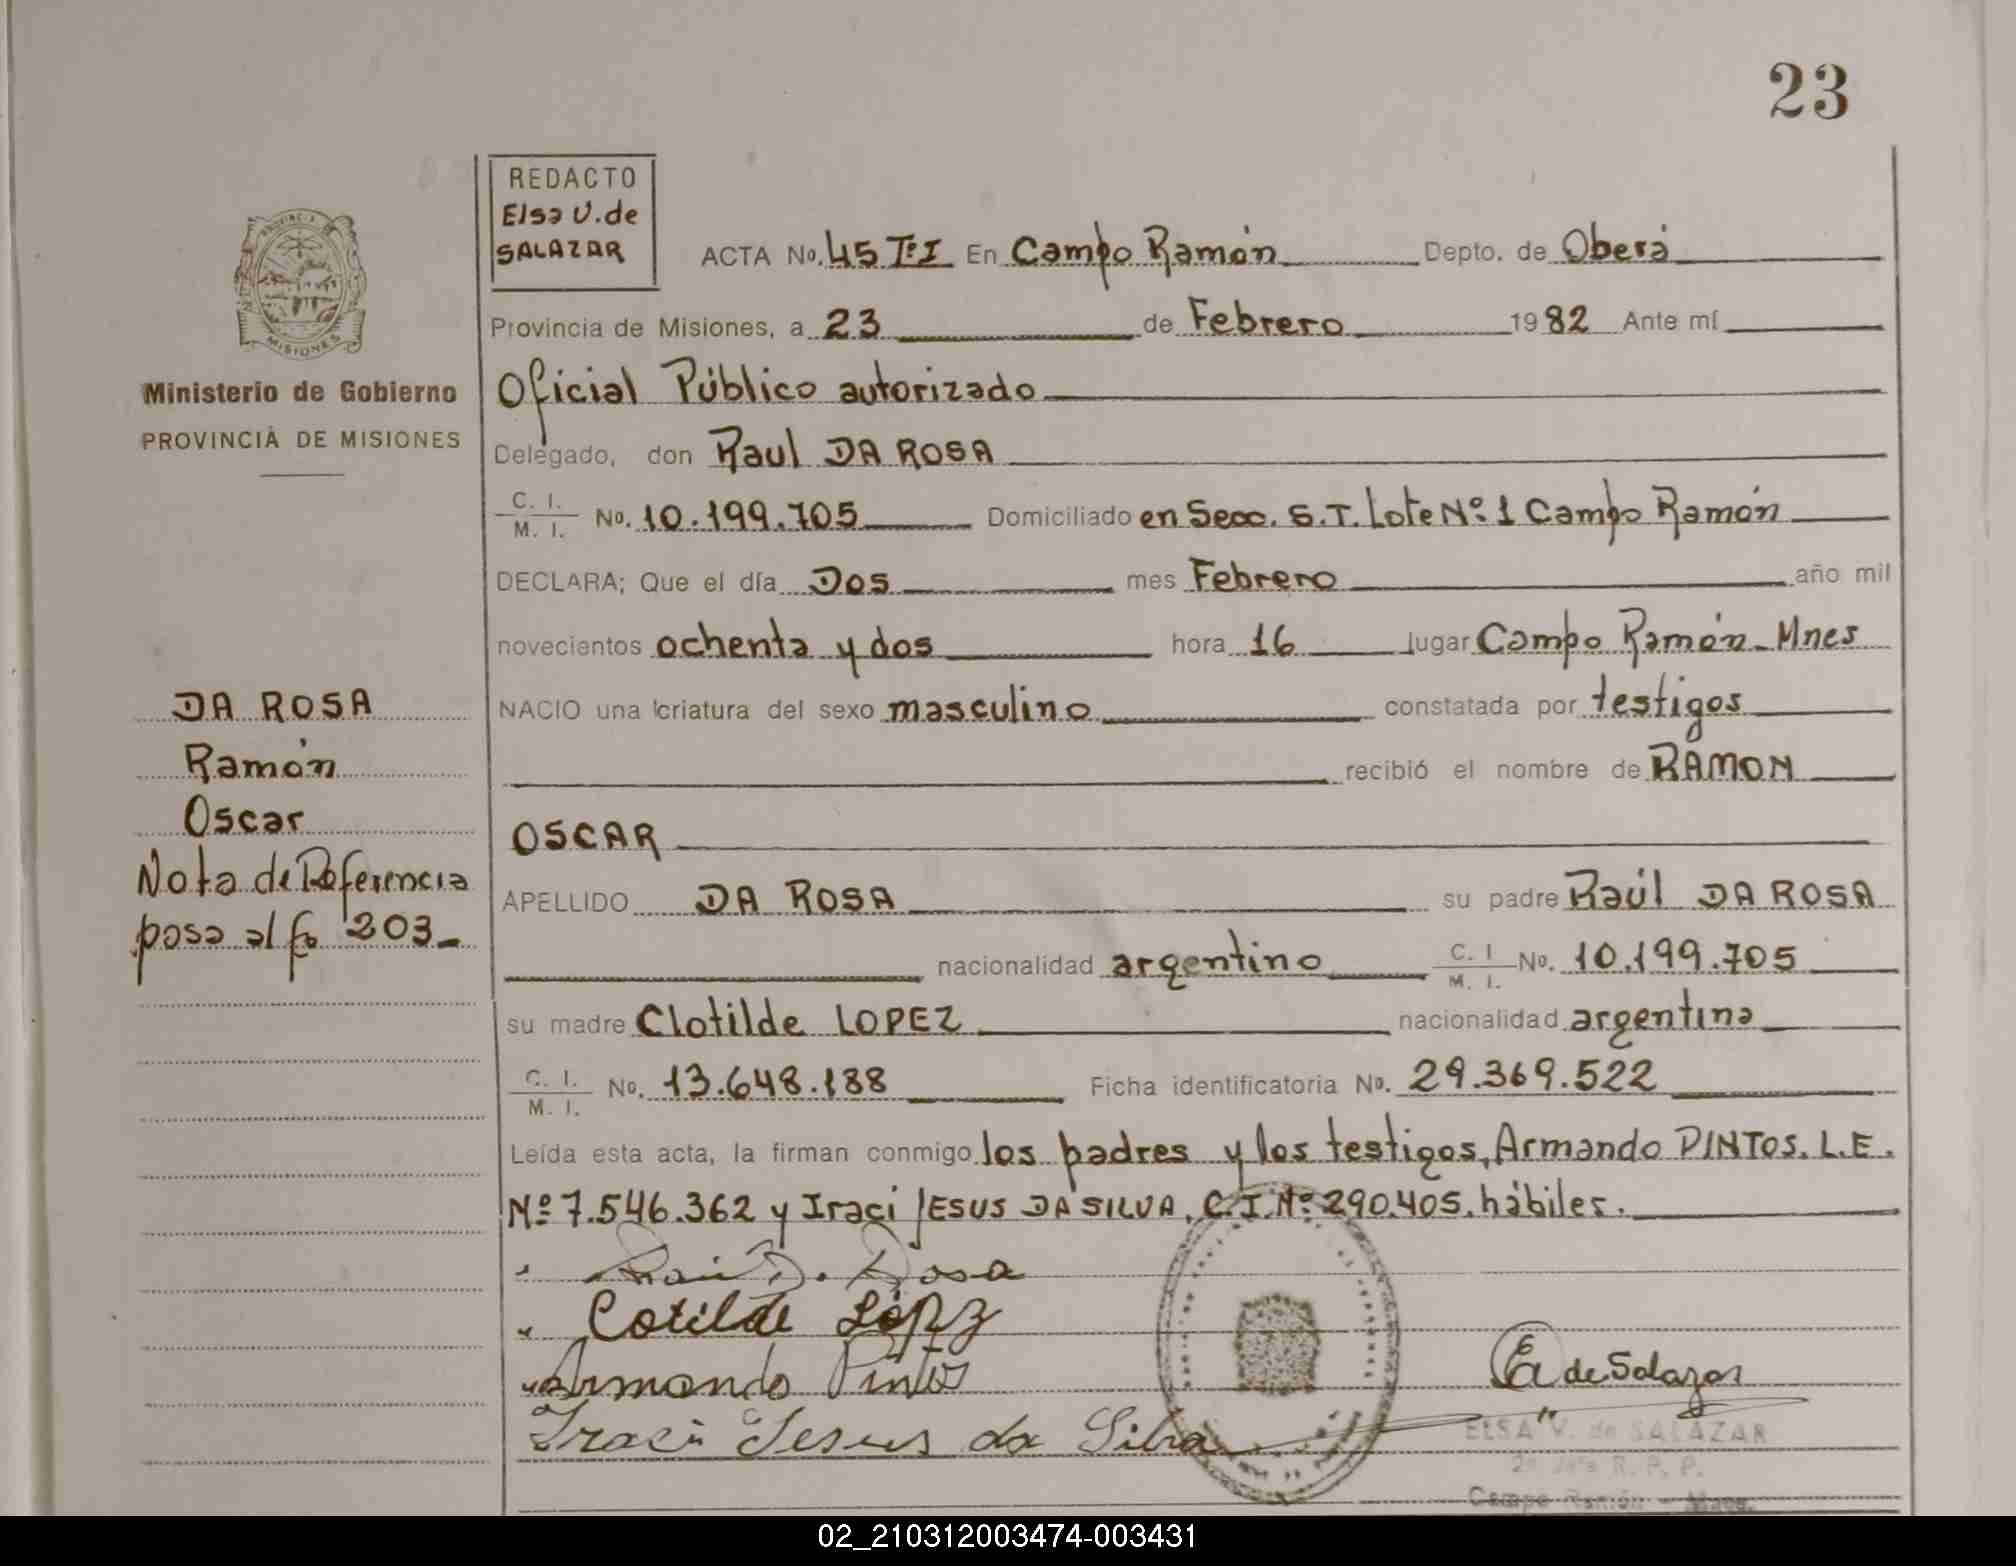 23
REDACTO
Elsa V. de
SALAZAR
ACTA No. 45 Tº I En Campo Ramón Depto. de Oberá
Provincia de Misiones, a 23 de Febrero 1982 Ante mí
Oficial Público autorizado
Delegado, don Raul DA ROSA
C. I. / M. I. No. 10.199.705 Domiciliado en Secc. S.T. Lote Nº 1 Campo Ramón
DECLARA; Que el día Dos mes Febrero año mil
novecientos ochenta y dos hora 16 lugar Campo Ramón - Mnes
NACIO una criatura del sexo masculino constatada por testigos
recibió el nombre de RAMON
OSCAR
APELLIDO DA ROSA su padre Raúl DA ROSA
nacionalidad argentino C. I / M. I. No. 10.199.705
su madre Clotilde LOPEZ nacionalidad argentina
C. I. / M. I. No. 13.648.188 Ficha identificatoria No. 29.369.522
Leída esta acta, la firman conmigo los padres y los testigos, Armando PINTOS. L.E.
Nº 7.546.362 y Iraci JESUS DA SILVA. C.I. Nº 290.405. hábiles.
D. Rosa
Cotilde López
Armando Pintos
Iraci Jesus da Silva
de Salazar
ELSA V. de SALAZAR
R. P. P.
Campo Ramón -
PROVINCIA DE
MISIONES
Ministerio de Gobierno
PROVINCIA DE MISIONES
DA ROSA
Ramón
Oscar
Nota de Referencia
pasa al fo 203-
02_210312003474-003431